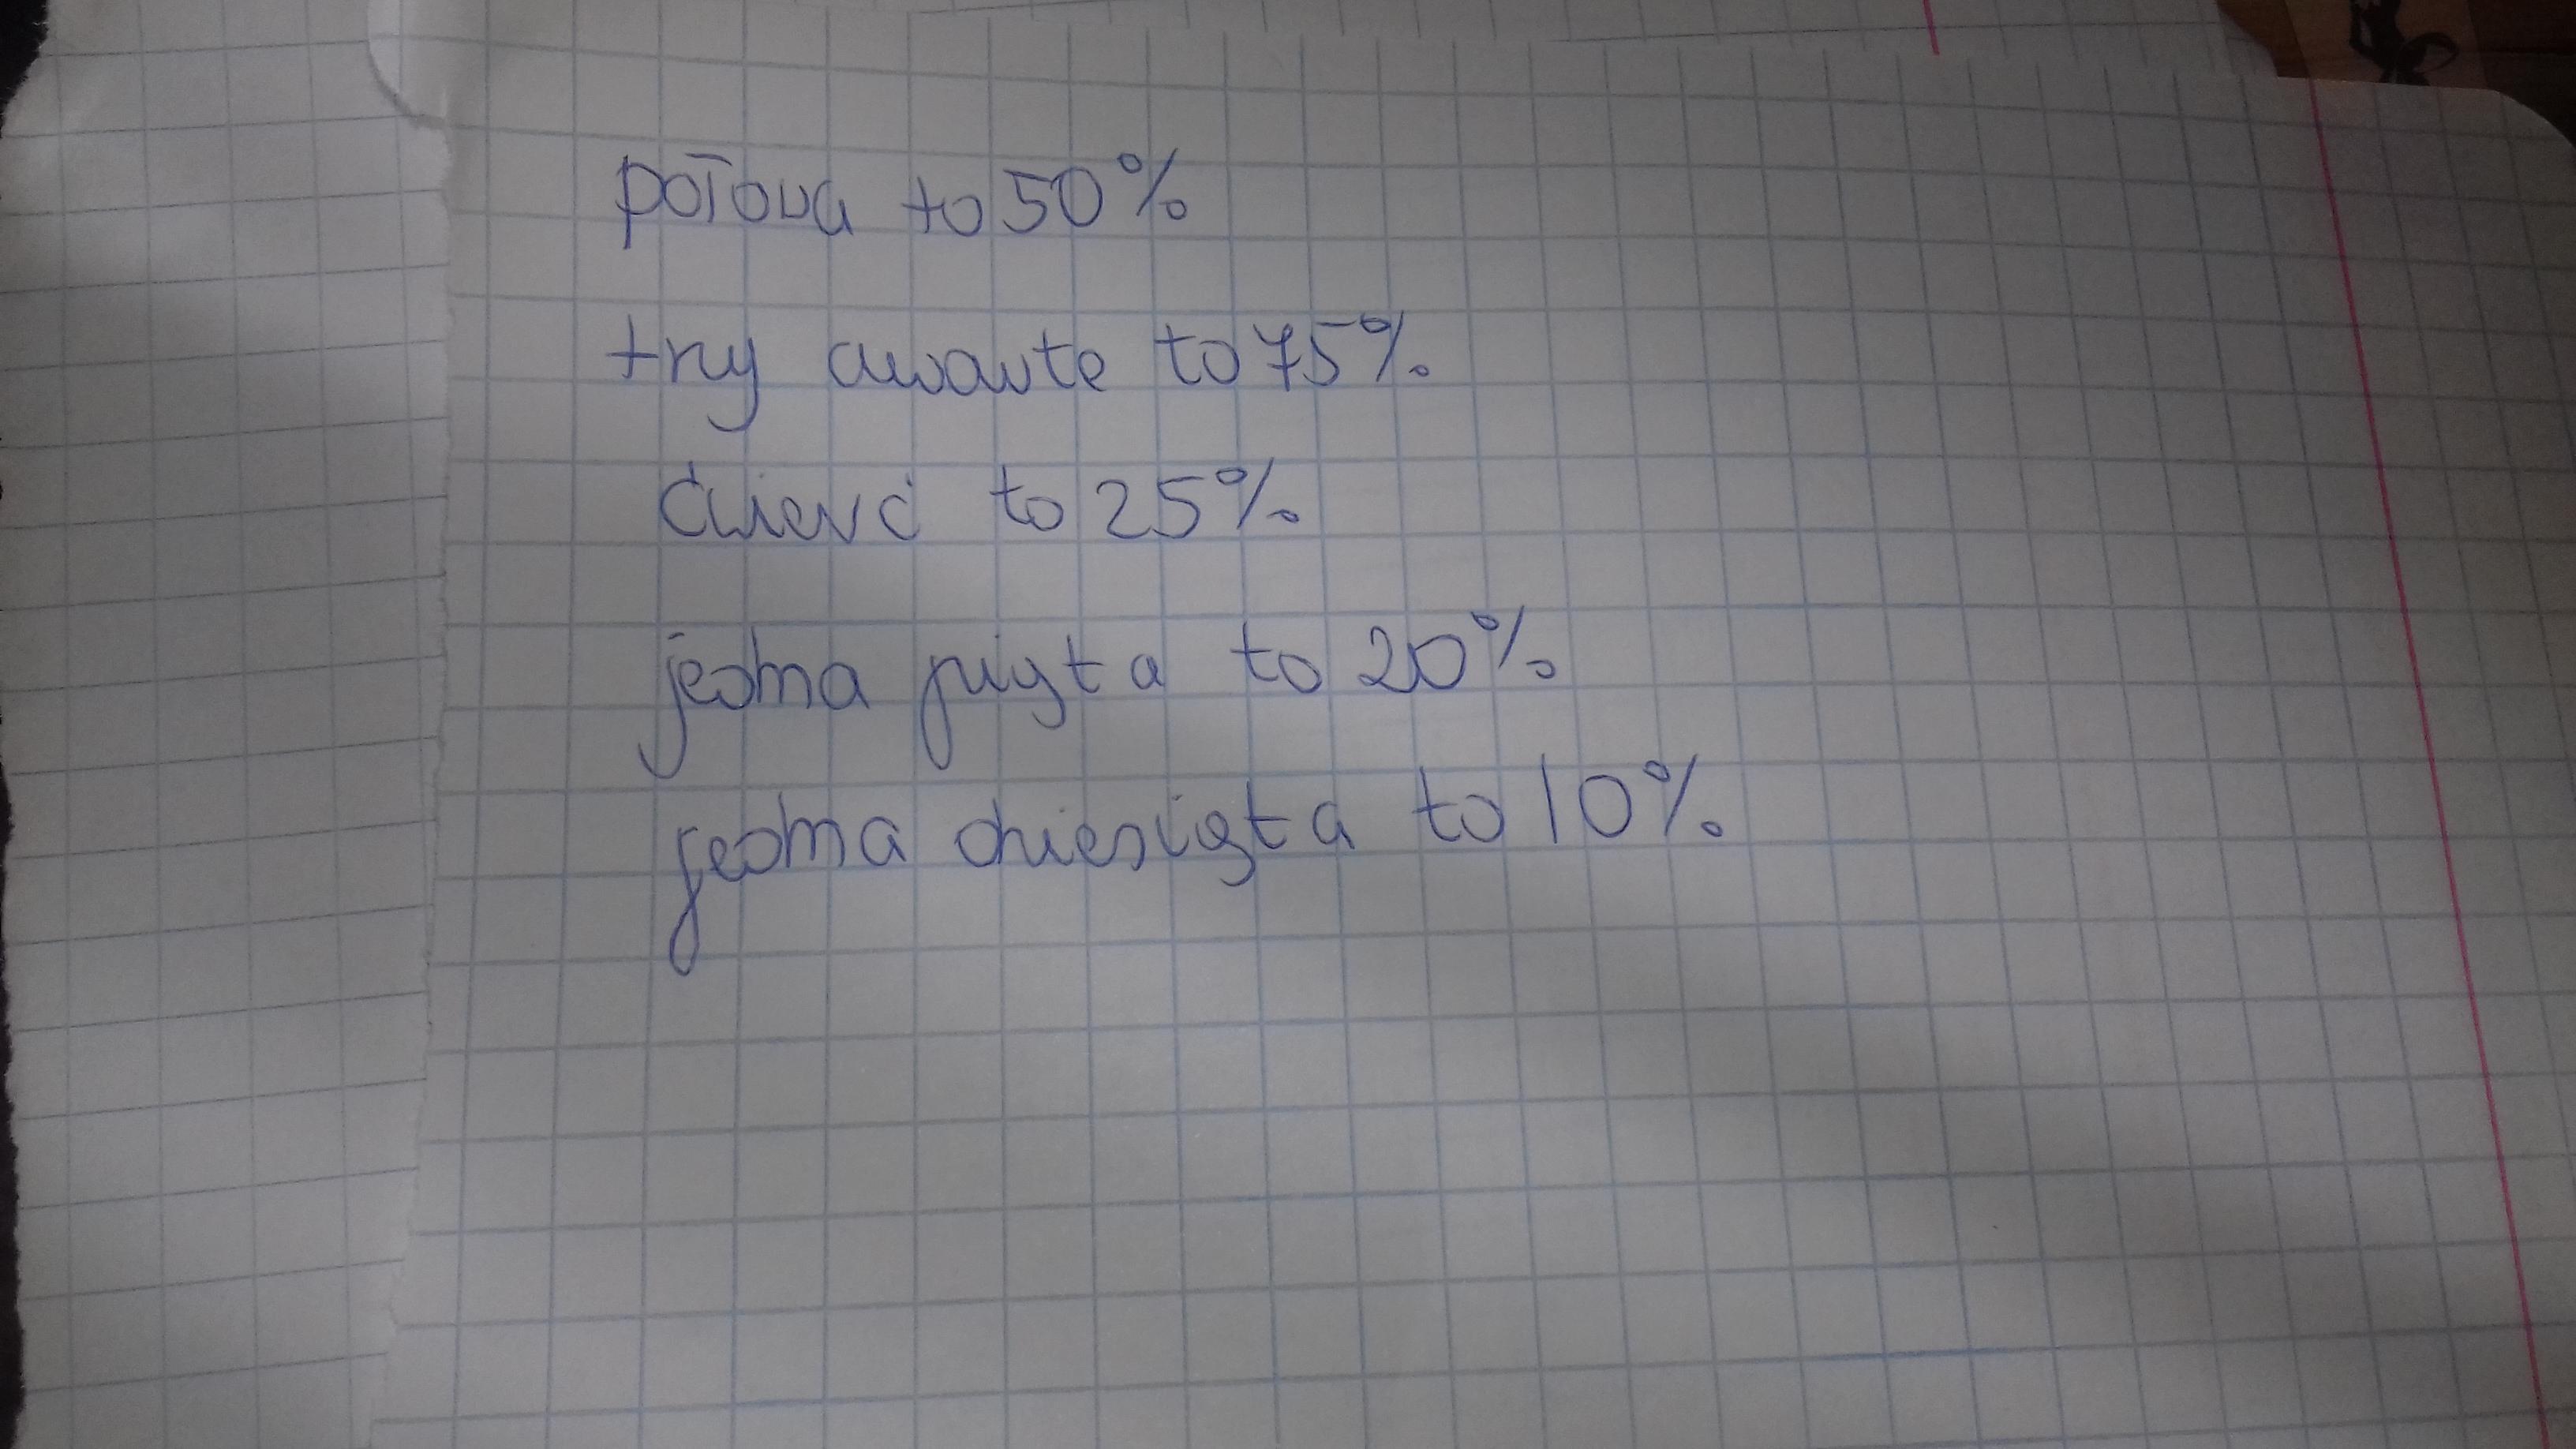 połowa to 50%
trzy czwarte to 75%
ćwierć to 25%
jedna piąta to 20%
jedna dziesiąta to 10%